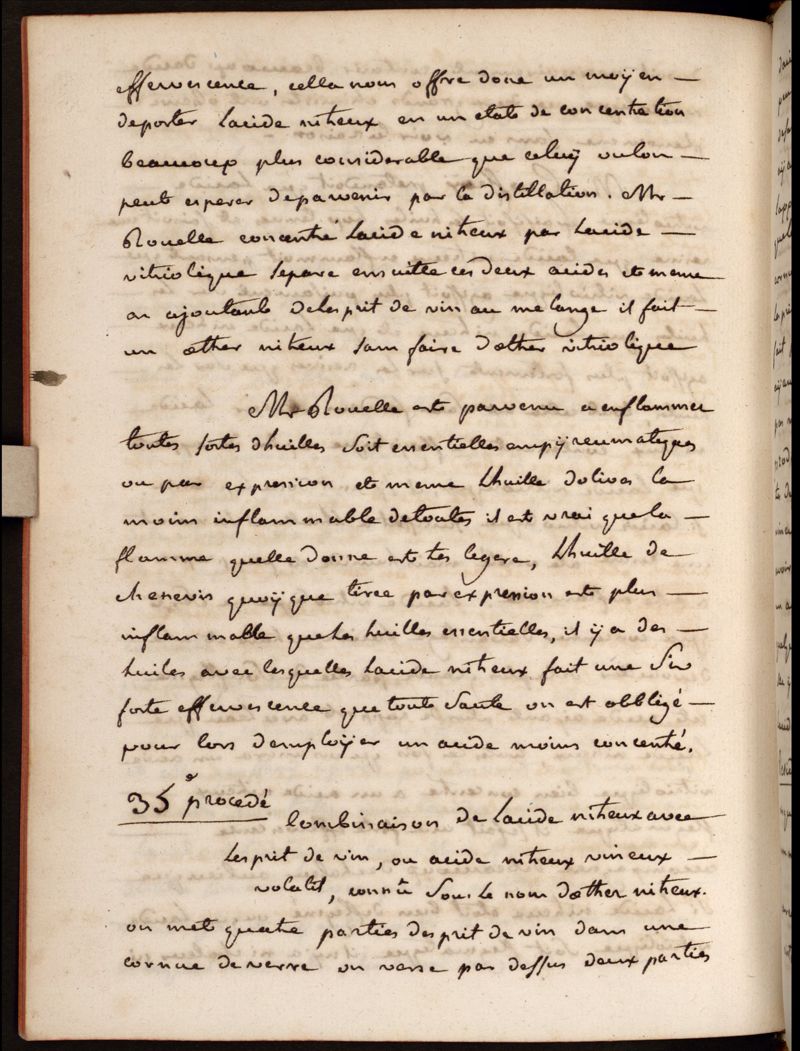 effervescence, cella nous offre donc un moÿen —
deporter Lacide nitreux en un etats de concentration
beaucoup plus considerable que celuÿ oulon —
peut esperer deparvenir par la distillation. Mr —
Rouelle concentré Lacide nitreux par Lacide —
vitriolique separe ensuitte ces deux acides et meme
en ajoutants delesprit de vin au melange il fait —
un æther nitreux sans faire dæther vitriolique
Mr Rouelle est parvenu a enflammer
toutes sortes dhuilles soit essentielles empÿreumatiques
ou par expression et meme Lhuille dolives la
moins inflammable detoutes il est vrai quela —
flamme quelle donne est tes legere, Lhuille de
chenevis quoÿque tirée par expression est plus —
inflammable que les huilles essentielles, il ÿ a des —
huiles avec lesquelles Lacide nitreux fait une si
forte effervescence que toute saute on est obbligé —
pour lors demploÿer un acide moins concentré.
35e procedé
Combinaison de Lacide nitreux avec
Lesprit de vin, ou acide nitreux vineux —
volatil, connu sous le nom dæther nitreux.
on met quatre parties desprit de vin dans une
cornue de verre on verse par dessus deux parties